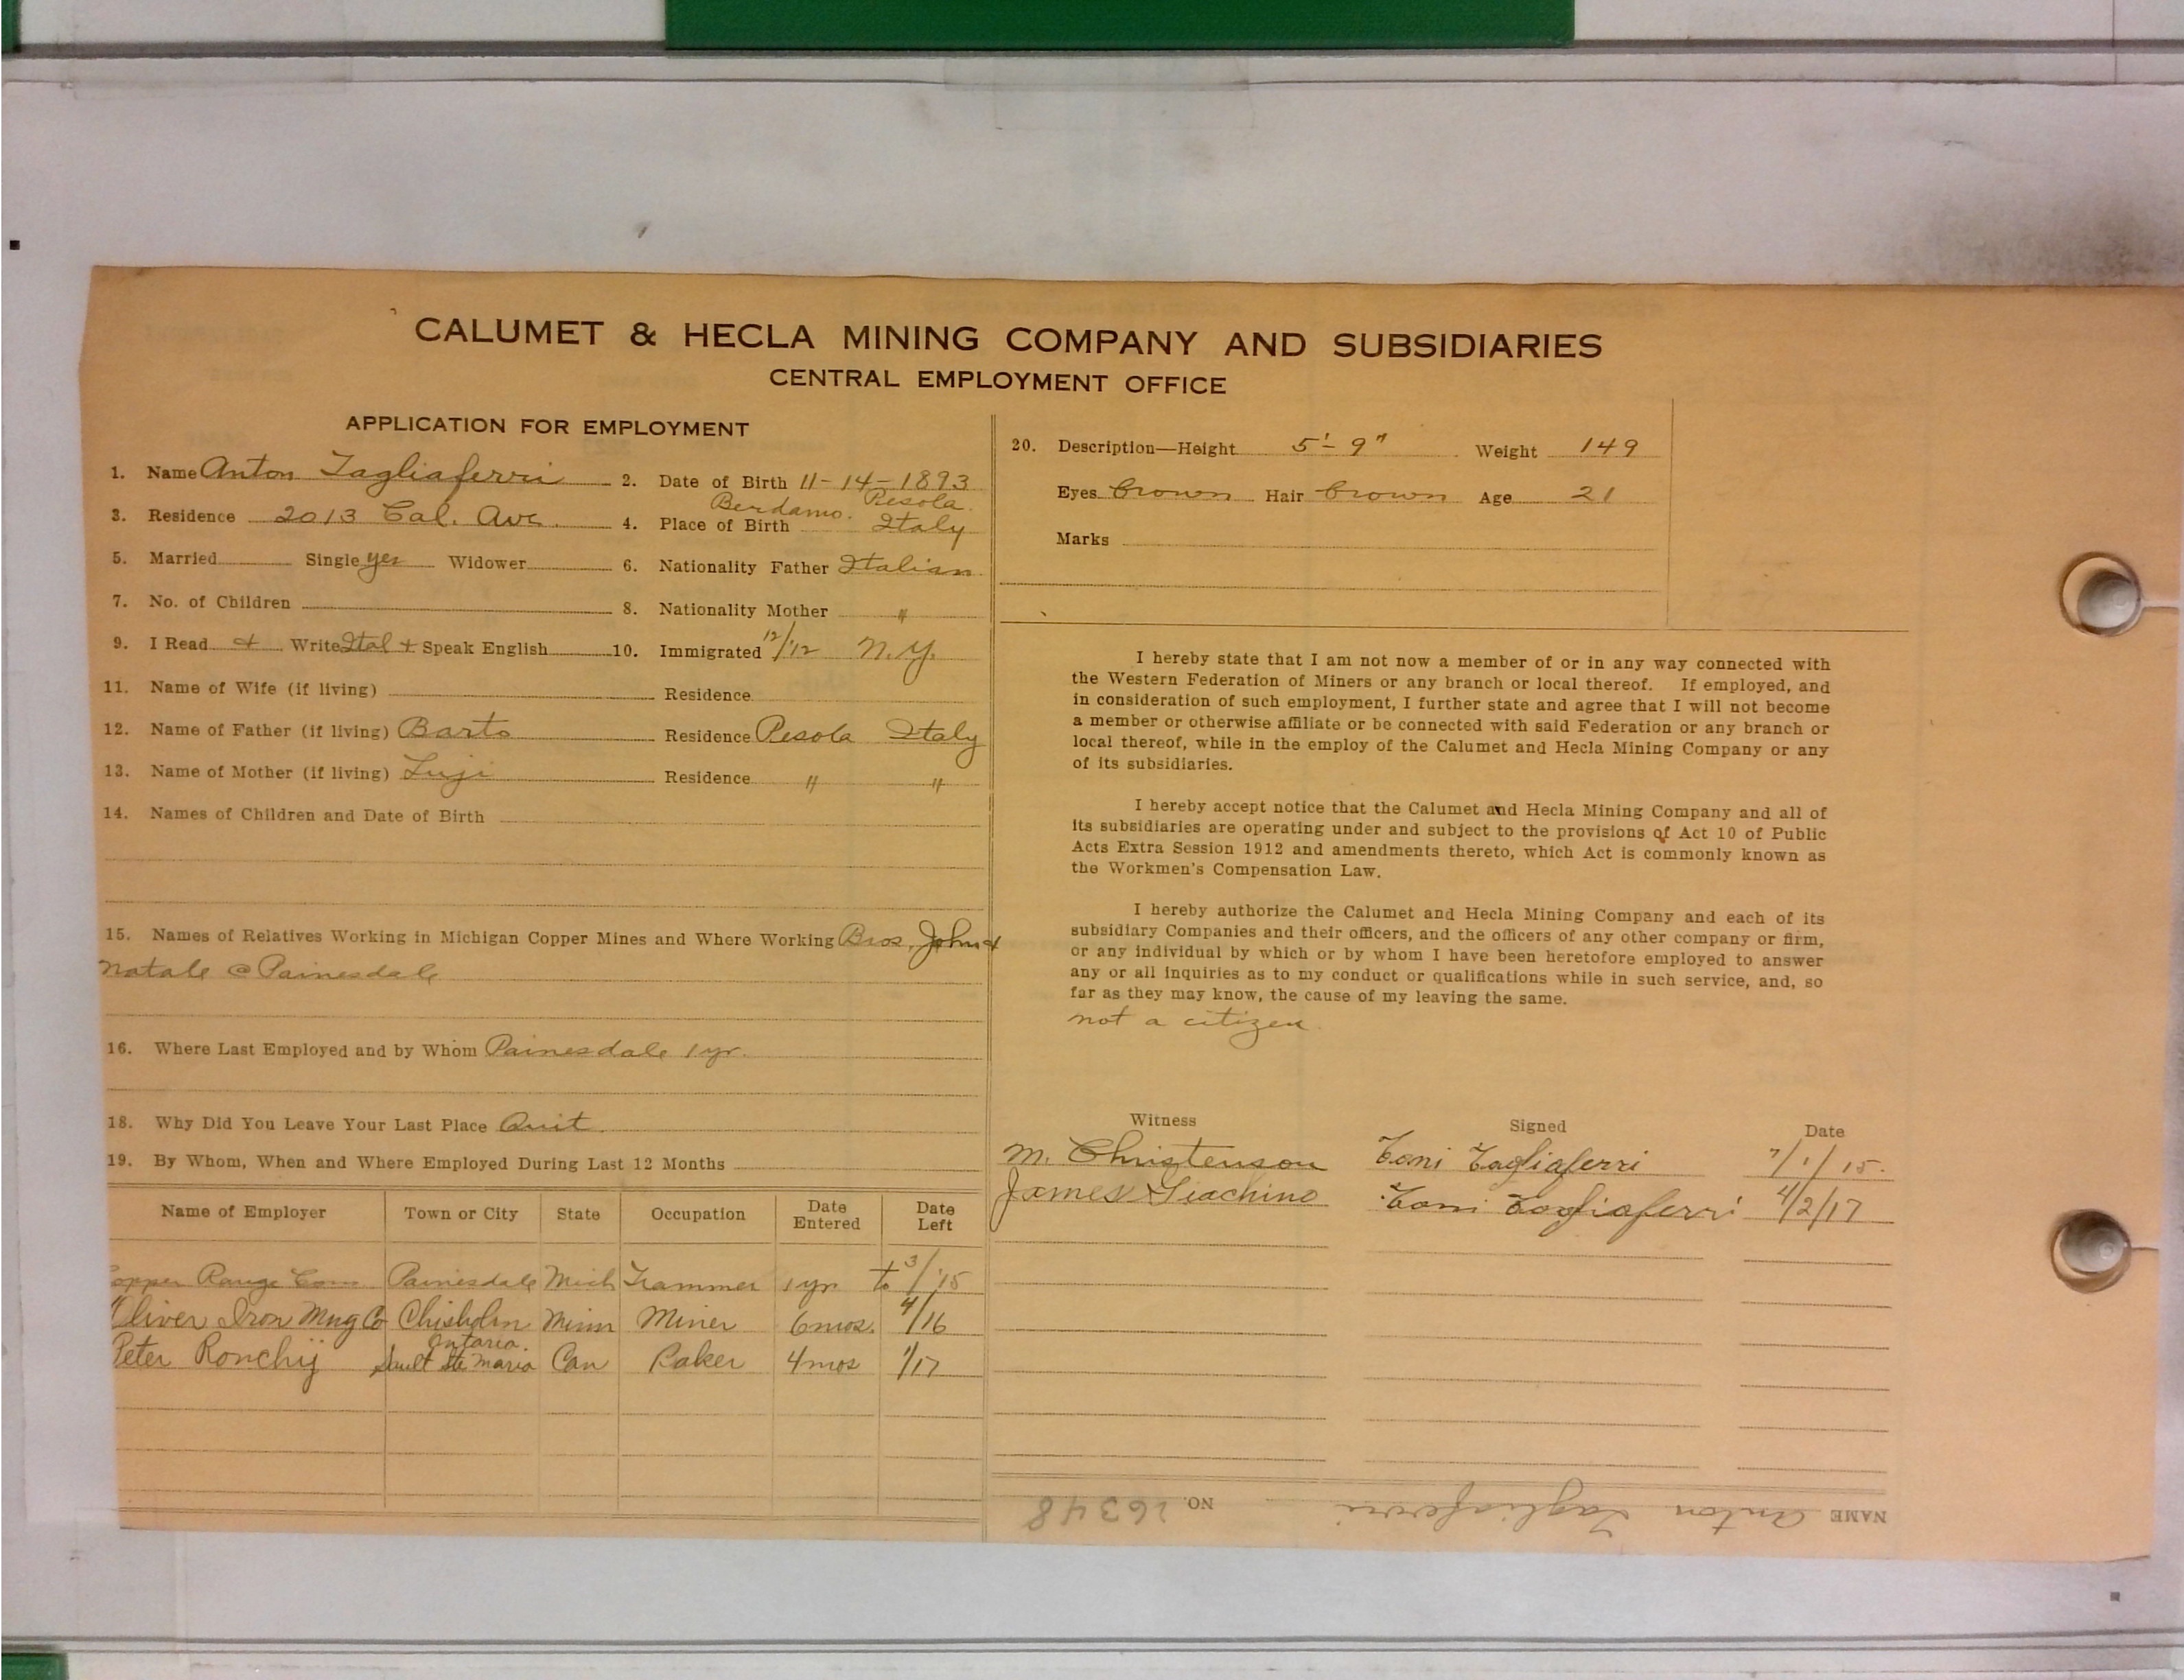 CALUMET & HECLA MINING COMPANY AND SUBSIDIARIES
CENTRAL EMPLOYMENT OFFICE
APPLICATION FOR EMPLOYMENT
1. Name Anton Tagliaferri 2. Date of Birth 11-14-1893
Berdamo. Pesola.
3. Residence 2013 Cal. Ave. 4. Place of Birth Italy
5. Married Single yes Widower 6. Nationality Father Italian
7. No. of Children 8. Nationality Mother "
9. I Read + Write Ital + Speak English 10. Immigrated 12/'12 N.Y.
11. Name of Wife (if living) Residence
12. Name of Father (if living) Barto Residence Pesola Italy
13. Name of Mother (if living) Luji Residence " "
14. Names of Children and Date of Birth
15. Names of Relatives Working in Michigan Copper Mines and Where Working Bros, John &
Natale @ Painesdale
16. Where Last Employed and by Whom Painesdale 1 yr.
18. Why Did You Leave Your Last Place Quit
19. By Whom, When and Where Employed During Last 12 Months
Name of Employer Town or City State Occupation Date Entered Date Left
opper Range Con. Painesdale Mich Trammer 1 yr to 3/'15
Oliver Iron Mng Co Chisholm Minn Miner 6 mos. 4/16
Ontario.
Peter Ronchij Sault Ste. Maria Can Raker 4 mos 1/17
20. Description—Height 5'-9" Weight 149
Eyes brown Hair brown Age 21
Marks
I hereby state that I am not now a member of or in any way connected with
the Western Federation of Miners or any branch or local thereof. If employed, and
in consideration of such employment, I further state and agree that I will not become
a member or otherwise affiliate or be connected with said Federation or any branch or
local thereof, while in the employ of the Calumet and Hecla Mining Company or any
of its subsidiaries.
I hereby accept notice that the Calumet and Hecla Mining Company and all of
its subsidiaries are operating under and subject to the provisions of Act 10 of Public
Acts Extra Session 1912 and amendments thereto, which Act is commonly known as
the Workmen's Compensation Law.
I hereby authorize the Calumet and Hecla Mining Company and each of its
subsidiary Companies and their officers, and the officers of any other company or firm,
or any individual by which or by whom I have been heretofore employed to answer
any or all inquiries as to my conduct or qualifications while in such service, and, so
far as they may know, the cause of my leaving the same.
not a citizen.
Witness Signed Date
M. Christenson Toni Tagliaferri 7/1/15.
James Giachino Toni Tagliaferri 4/2/17
NAME Anton Tagliaferri NO. 26348